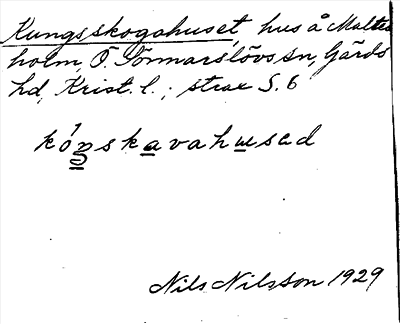 Kungsskogahuset, hus å Maltes
holm, Ö. Sönnarslövs sn, Gärds
hd, Krist. l.; strax S. 6
kóŋskavahusad
Nils Nilsson 1929